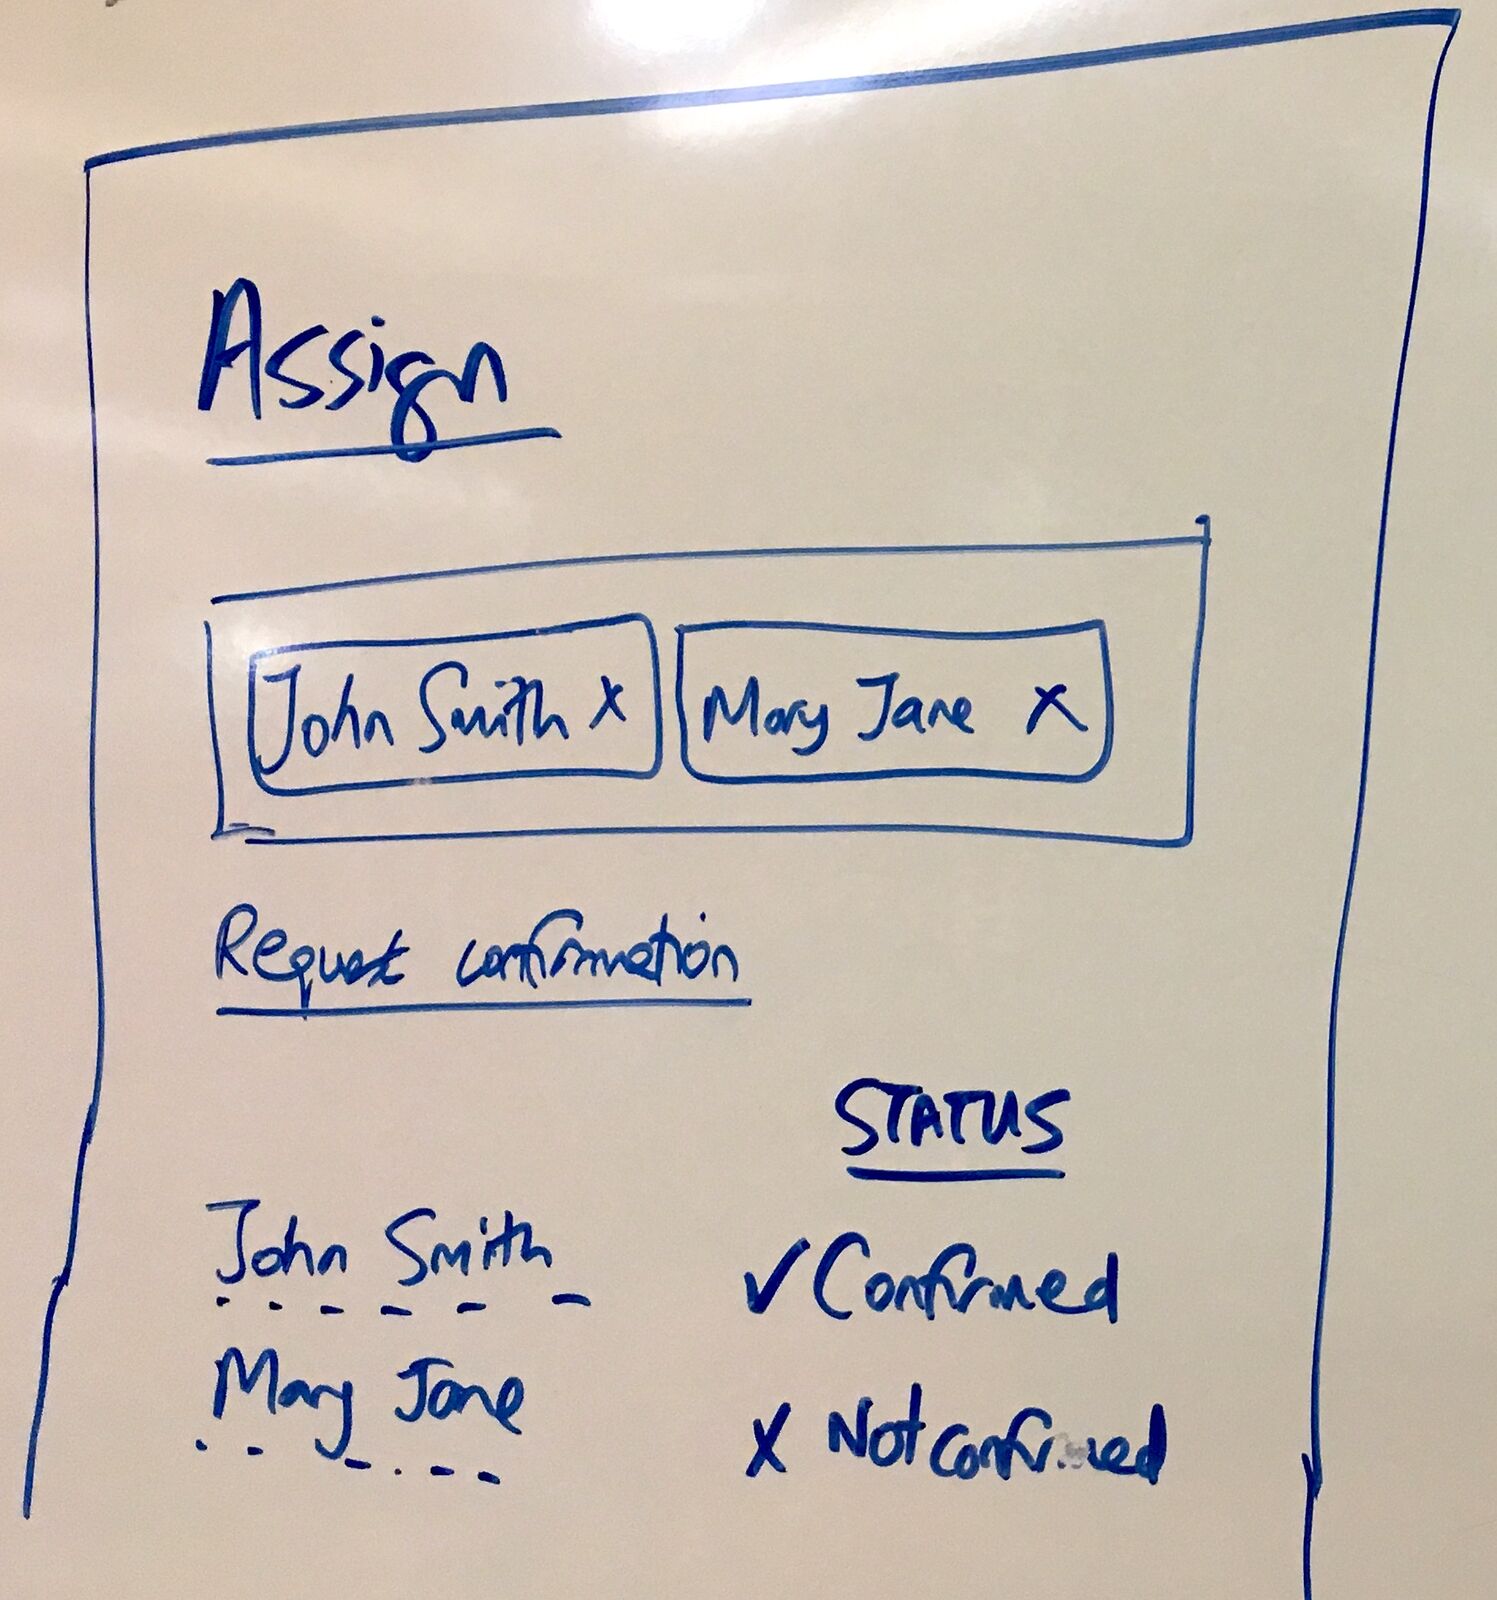 Assign
John Smith x Mary Jane x
Request confirmation
STATUS
John Smith ✓ Confirmed
Mary Jane x Not confirmed